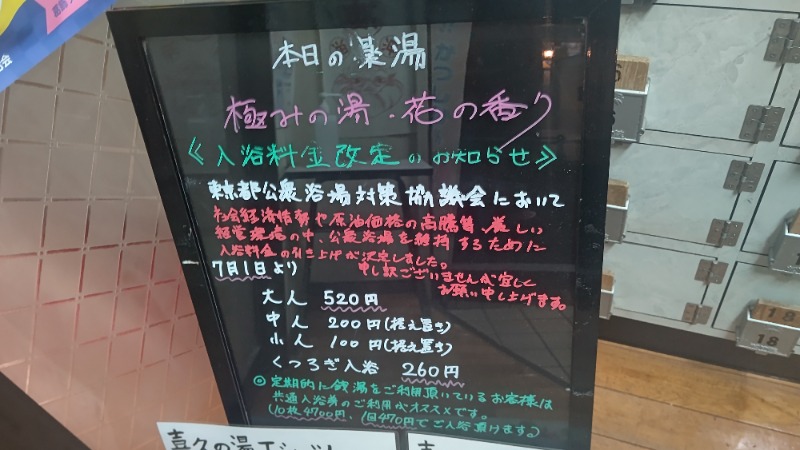 本日の薬湯
極みの湯・花の香り
《入浴料金改定のお知らせ》
東京都公衆浴場対策協議会において
社会経済情勢や原油価格の高騰等、厳しい
経営環境の中、公衆浴場を維持するために
入浴料金の引き上げが決定しました。
7月1日より
申し訳ございませんが宜しく
お願い申し上げます。
大人 520円
中人 200円(据え置き)
小人 100円(据え置き)
くつろぎ入浴 260円
◎定期的に銭湯をご利用頂いているお客様は
共通入浴券のご利用がオススメです。
(10枚4700円、1回470円でご入浴頂けます。)
喜久の湯Tシャツ
18
18